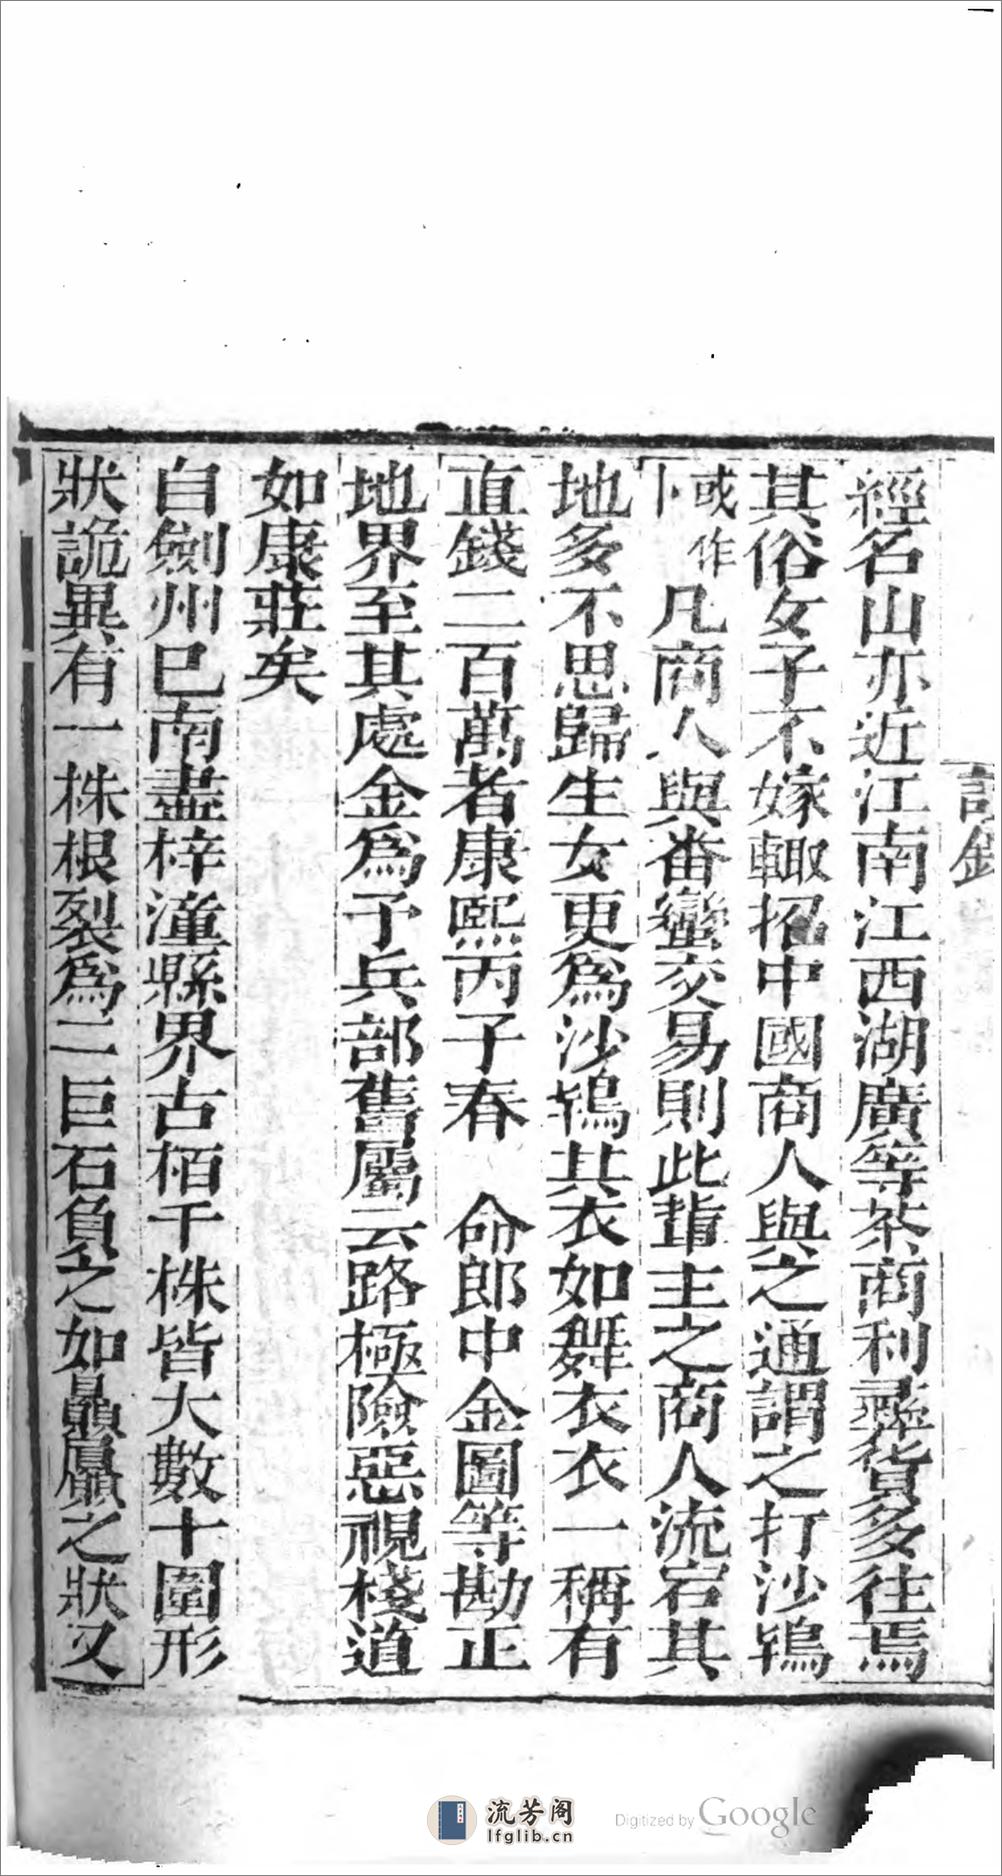 經名山亦近江南江西湖廣等茶商利彞貨多往焉
其俗女子不嫁輙招中國商人與之通謂之打沙鴇
或作卜凡商人與番蠻交易則此輩主之商人流宕其
地多不思歸生女更爲沙鴇其衣如舞衣衣一稱有
直錢二百萬者康熙丙子春 命郎中金圖等勘正
地界至其處金爲予兵部舊屬云路極險惡視棧道
如康莊矣
自劍州巳南盡梓潼縣界古栢千株皆大數十圍形
狀詭異有一株根裂爲二巨石負之如贔屭之狀又
流芳阁
lfglib.cn
Digitized by Google